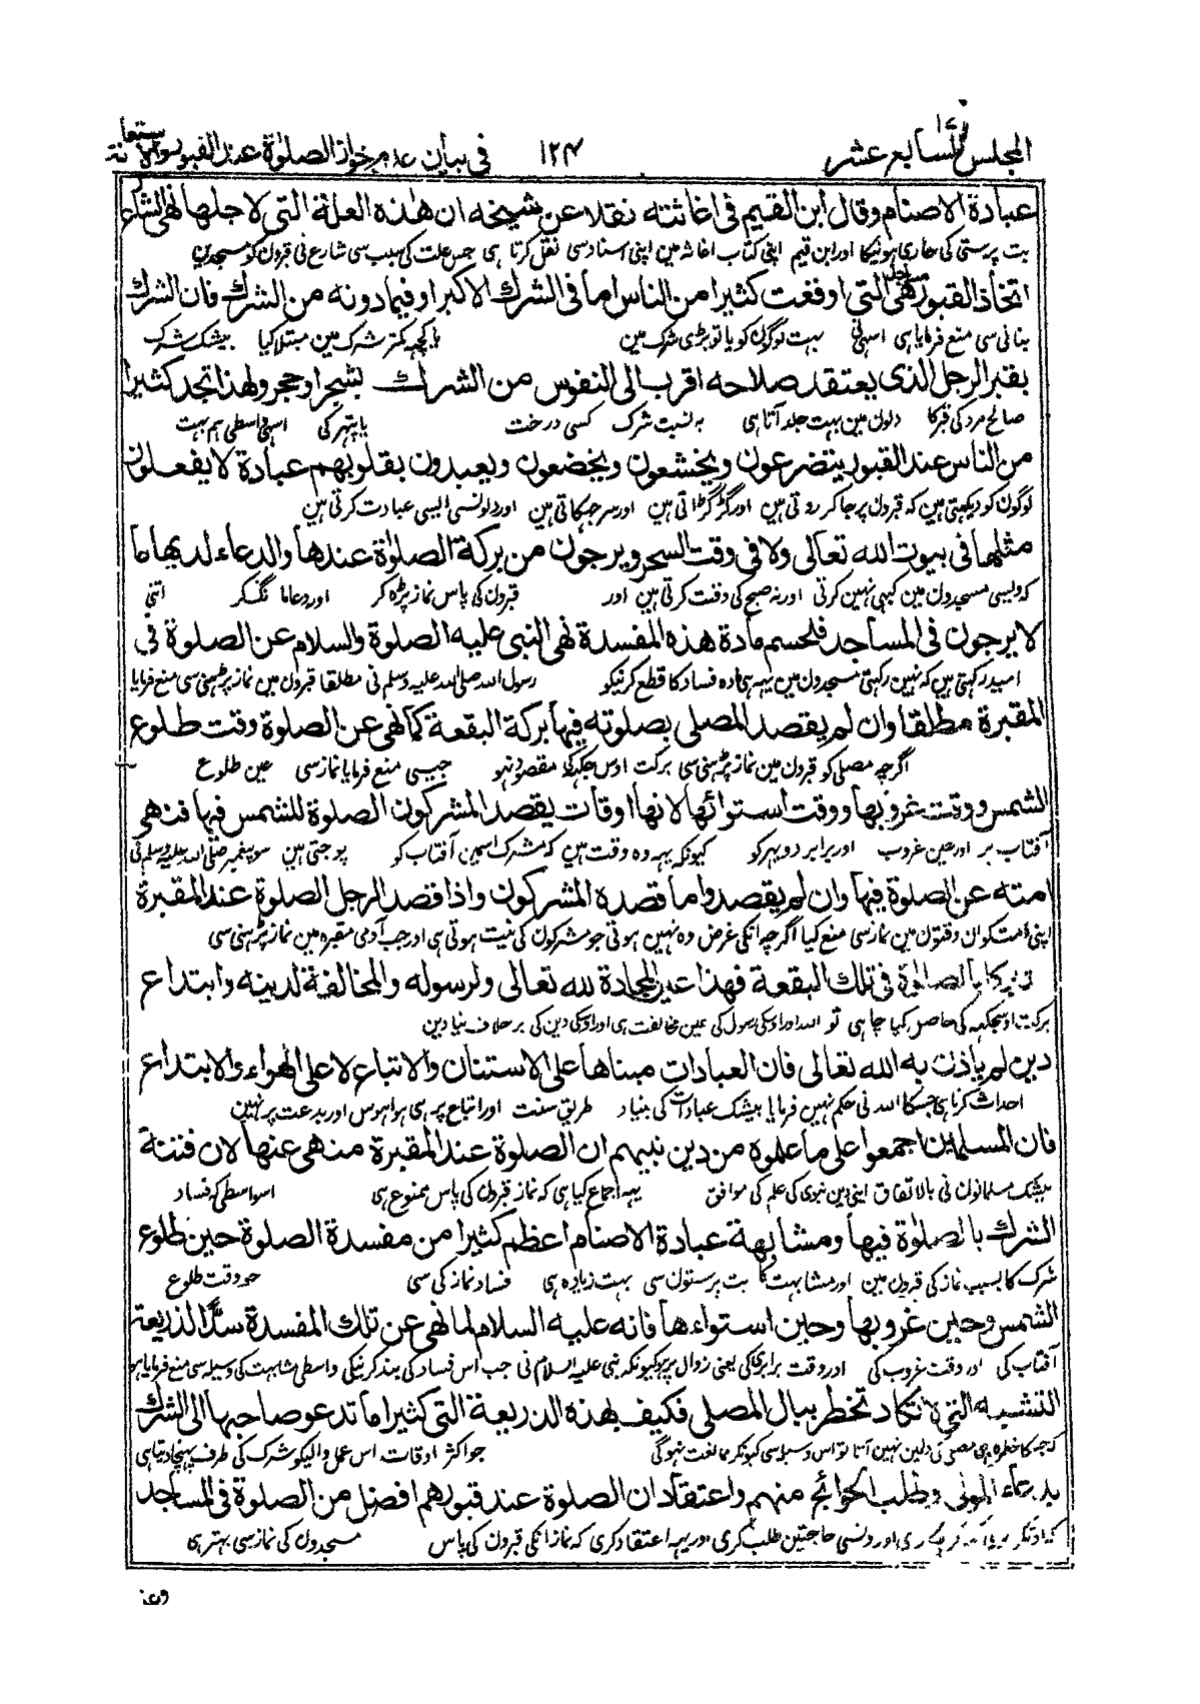 المجلس السابع عشر ١٢٤ فى بيان عدم جواز الصلوٰة عند القبور والاستعانة
عبادة الاصنام وقال ابن القيم فى اغاثته نقلا عن شيخه ان هٰذه العلة التى لاجلها نهى الشارع
بت پرستى كى جارى هونيكا اور ابن قيم اپنى كتاب اغاثه مين اپنى استاد سى نقل كرتا هى جس علت كى سبب سى شارع نى قبرون كو مسجدين
اتخاذ القبور مساجد هى التى اوقعت كثيرا من الناس اما فى الشرك الاكبر او فيما دونه من الشرك فان الشرك
بنانى سى منع فرمايا هى اسنى بهت لوگون كو يا تو بڑى شرك مين يا كچهه كمتر شرك مين مبتلا كيا بيشك شرك
بقبر الرجل الذى يعتقد صلاحه اقرب الى النفوس من الشرك بشجر او حجر ولهذا تجد كثيرا
صالح مرد كى قبر كا دلون مين بهت جلد آتا هى به نسبت شرك كسى درخت يا پتهر كى اسى واسطى هم بهت
من الناس عند القبور يتضرعون ويخشعون ويخضعون ويعبدون بقلوبهم عبادة لا يفعلون
لوگون كو ديكهتى هين كه قبرون پر جا كر روتى هين اور گڑگڑاتى هين اور سر جهكاتى هين اور دلونسى ايسى عبادت كرتى هين
مثلها فى بيوت الله تعالى ولا فى وقت السحر ويرجون من بركة الصلوٰة عندها والدعاء لديها ما
كه ويسى مسجدون مين كبهى نهين كرتى اور نه صبح كى وقت كرتى هين اور قبرون كى پاس نماز پڑه كر اور دعا مانگ كر اتنى
لا يرجون فى المساجد فلحسم مادة هذه المفسدة نهى النبى عليه الصلوة والسلام عن الصلوة فى
اميد ركهتى هين كه نهين ركهتى مسجدون مين يهه هى ماده فساد كا قطع كرنيكو رسول الله صلى الله عليه وسلم نى مطلقا قبرون مين نماز پڑهنى سى منع فرمايا
المقبرة مطلقا وان لم يقصد المصلى بصلوته فيها بركة البقعة كما نهى عن الصلوة وقت طلوع
اگرچه مصلى كو قبرون مين نماز پڑهنى سى بركت اوس جگهه كى مقصود نهو جيسى منع فرمايا نماز سى عين طلوع
الشمس ووقت غروبها ووقت استوائها لانها اوقات يقصد المشركون الصلوة للشمس فيها فنهى
آفتاب پر اور عين غروب اور برابر دوپهر كو كيونكه يهه وه وقت هين كه مشرك اسمين آفتاب كو پوجتى هين سو پيغمبر صلى الله عليه وسلم نى
امته عن الصلوة فيها وان لم يقصدوا ما قصده المشركون واذا قصد الرجل الصلوة عند المقبرة
اپنى امت كو ان وقتون مين نماز سى منع كيا اگرچه انكى غرض وه نهين هوتى جو مشركون كى نيت هوتى هى اور جب آدمى مقبره مين نماز پڑهنى سى
تبركا بالصلوٰة فى تلك البقعة فهذا عين المحادة لله تعالى ولرسوله والمخالفة لدينه وابتداع
بركت اوسجگهه كى حاصل كيا چاهى تو الله اور اوسكى رسول كى عين مخالفت هى اور اوسكى دين كى برخلاف نيا دين
دين لم ياذن به الله تعالى فان العبادات مبناها على الاستنان والاتباع لا على الهواء والابتداع
احداث كرنا هى جسكا الله نى حكم نهين فرمايا بيشك عبادات كى بنياد طريق سنت اور اتباع پر هى هوا هوس اور بدعت پر نهين
فان المسلمين اجمعوا على ما علموه من دين نبيهم ان الصلوة عند المقبرة منهى عنها لان فتنة
بيشك مسلمانون نى بالاتفاق اپنى دين نبوى كى علم كى موافق يهه اجماع كيا هى كه نماز قبرون كى پاس ممنوع هى اسواسطى كه فساد
الشرك بالصلوٰة فيها ومشابهة عبادة الاصنام اعظم كثيرا من مفسدة الصلوة حين طلوع
شرك كا بسبب نماز كى قبرون مين اور مشابهت كا بت پرستون سى بهت زياده هى فساد نماز كى سى جو وقت طلوع
الشمس وحين غروبها وحين استواءها فانه عليه السلام لما نهى عن تلك المفسدة سدًّا لذريعة
آفتاب كى اور وقت غروب كى اور وقت برابرى كى يعنى زوال پر هو كيونكه نبى عليه السلام نى جب اس فساد كى بند كرنيكى واسطى مشابهت كى وسيله سى منع فرمايا هو
التشبه التى لا تكاد تخطر ببال المصلى فكيف بهذه الذريعة التى كثيرا ما تدعو صاحبها الى الشرك
كه جسكا خطره بهى مصلى كى دلمين نهين آتا تو اس وسيله سى كيونكر مخالفت نهوگى جو اكثر اوقات اس عمل واليكو شرك كى طرف پهنچا ديتا هى
بدعاء الموتى وطلب الحوائج منهم واعتقاد ان الصلوة عند قبورهم افضل من الصلوة فى المساجد
اور ونسى حاجتين طلب كرى اور يهه اعتقاد كرى كه نماز انكى قبرون كى پاس مسجدون كى نماز سى بهتر هى